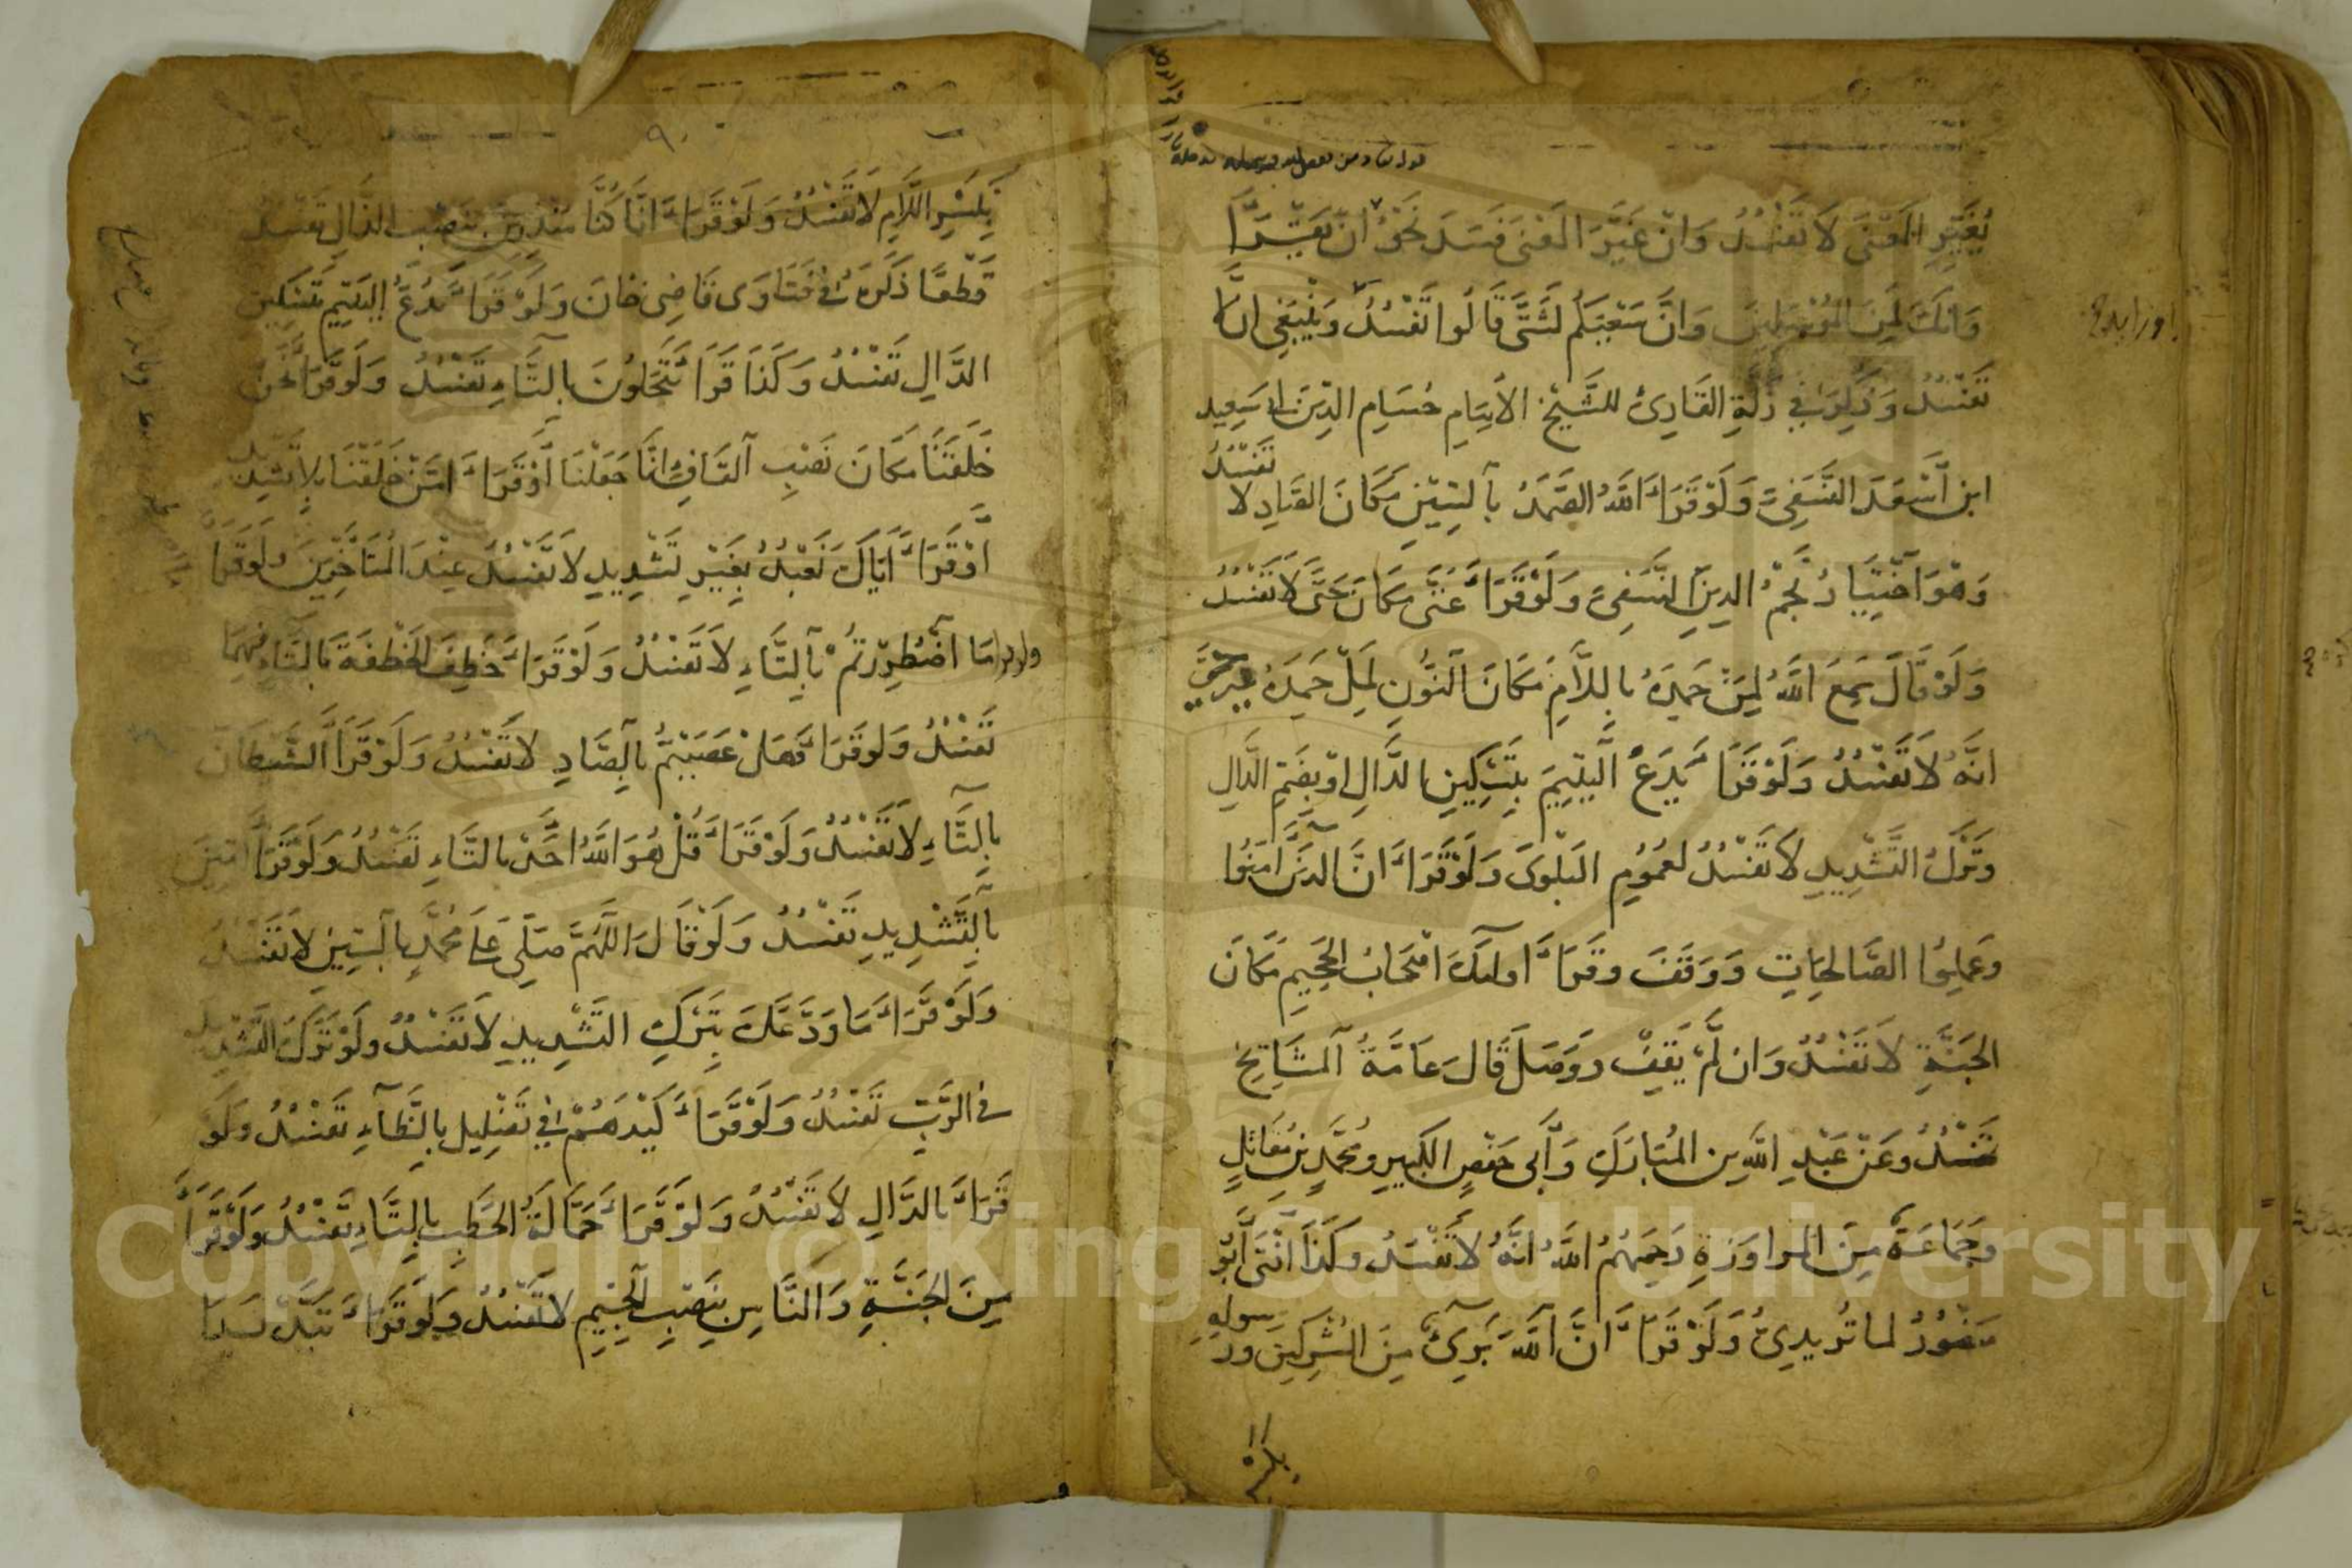 يُغَيِّرِ المَعْنَى لَا تَفْسُدُ وَانْ غَيَّرَ المَعْنَى فَسَدَ نَحْوُ انْ يَقْرَأَ
وَانَّكَ لَمِنَ المُرْسَلِينَ وَانَّ سَعْيَكُمْ لَشَتَّى قَالُوا تَفْسُدُ وَيَنْبَغِى ان لَا
تَفْسُدُ وَذُكِرَ فِي زَلَّةِ القَارِئ للشَّيْخِ الاِمَامِ حُسَامِ الدِّينِ سَعِيد
ابن اَسْعَدَ النَّسَفِىّ وَلَوْ قَرَاَ اَللّٰهُ الصَّمَدُ بِالسِّينِ مَكَانَ الصَّادِ لا تَفْسُدُ
وَهْوَ اخْتِيَارُ نَجْمُ الدِينِ النَّسَفِىّ وَلَوْ قَرَاَ عَتَّى مَكَانَ حَتَّى لَا تَفْسُدُ
وَلَوْ قَالَ سَمِعَ اللّٰهُ لِمَنْ حَمِدَهُ بِاللَّامِ مَكَانَ النُّونِ لِمَلْ حَمِدَهُ
انَّهُ لَا تَفْسُدُ وَلَوْ قَرَاَ يَدُعُّ اليَتِيمَ بِتَسْكِينِ الدَّالِ اوْ بِضَمِّ الدَّالِ
وَتَرْكُ التَّشْدِيدِ لَا تَفْسُدُ لعُمُومِ البَلْوَى وَلَوْ قَرَاَ انَّ الَّذِينَ آمَنُوا
وَعَمِلُوا الصَّالِحَاتِ وَوَقَفَ وقَرَاَ اولئكَ اصْحَابُ الجَحِيمِ مَكَانَ
الجَنَّةِ لَا تَفْسُدُ وَان لَمْ يَقِفْ وَوَصَلَ قَالَ عَامَّةُ المَشَايِخِ
تَفْسُدُ وَعَنْ عَبْدِ اللّٰهِ بن المُبَارَكِ وَأَبى حَفْصٍ الكَبِيرِ وَمُحَمَّدٍ بن مُقَاتِلٍ
وَجَمَاعَةٌ مِنَ المراوزةِ رَحِمَهُمُ اللّٰهُ انَّهُ لَا تَفْسُدُ وَكَذَا اَفْتَى اَبُو
مَنْصُورُ لماتُرِيدِىُّ وَلَوْ قَرَاَ انَّ اللّٰهَ بَرِىءٌ مِنَ المُشْرِكِينَ وَرَسُولِهِ
بِكَسْرِ اللَّامِ لَا تَفْسُدُ وَلَوْ قَرَاَ انَّا كُنَّا مُنْذَرِينَ بِنَصْبِ الذَّالِ تَفْسُدُ
قَطْعًا ذَكَرَهُ في فَتَاوَى قَاضِى خانَ وَلَوْ قَرَاَ يَدُعُّ اليَتِيم بتَسْكِينِ
الدَّالِ تَفْسُدُ وَكَذَا قَرَاَ يَتْخَلُونَ بِالتَّاءِ تَفْسُدُ وَلَوْ قَرَاَ نَحْنُ
خَلَقَنَا مَكَانَ نَصْبِ القَافِ انَّا جَعَلْنَا اَوْ قَرَاَ امَّنْ خَلَقْنَا بلا تَشْدِيدِ
اَوْ قَرَاَ اِيَاكَ نَعْبُدُ بِغَيْرِ تَشْدِيدِ لَا تَفْسُدُ عِنْدَ المُتَأَخِّرِينَ وَلَوْ قَرَاَ
مَا اضْطُرِرْتُمْ بِالتَّاءِ لَا تَفْسُدُ وَلَوْ قَرَاَ خَطِفَ الخَطْفَةَ بِالتَّاءِ فِيهِمَا
تَفْسُدُ وَلَوْ قَرَاَ فَهَلْ عَصَيْتُمْ بِالصَّادِ لَا تَفْسُدُ وَلَوْ قَرَاَ الشَّيْطَانَ
بِالتَّاءِ لَا تَفْسُدُ وَلَوْ قَرَاَ قُلْ هُوَ اللّٰهُ اَحَدٌ بالتَّاءِ تَفْسُدُ وَلَوْ قَرَاَ آمِّينَ
بِالتَّشْدِيدِ تَفْسُدُ وَلَوْ قَالَ اللّٰهُمَّ صَلِّى عَلَى مُحَمَّدٍ بِالسِّينِ لَا تَفْسُدُ
وَلَوْ قَرَاَ مَا وَدَّعَكَ بِتَرْكِ التَّشْدِيدِ لَا تَفْسُدُ وَلَوْ تَرَكَ التَّشْدِيدَ
فى الرَّبِّ تَفْسُدُ وَلَوْ قَرَاَ كَيْدَهُمْ فِي تَضْلِيلٍ بِالظَّاءِ تَفْسُدُ وَلَوْ
قَرَاَ بالدَّالِ لَا تَفْسُدُ وَلَوْ قَرَاَ حَمَّالَةَ الحَطَبِ بِالتَّاءِ تَفْسُدُ وَلَوْ قَرَاَ
مِنَ الجَنَّةِ وَالنَّاسِ بِنَصْبِ الجِيمِ لَا تَفْسُدُ وَلَوْ قَرَاَ تَبَّتْ يَدَا
Copyright © King Saud University
1957